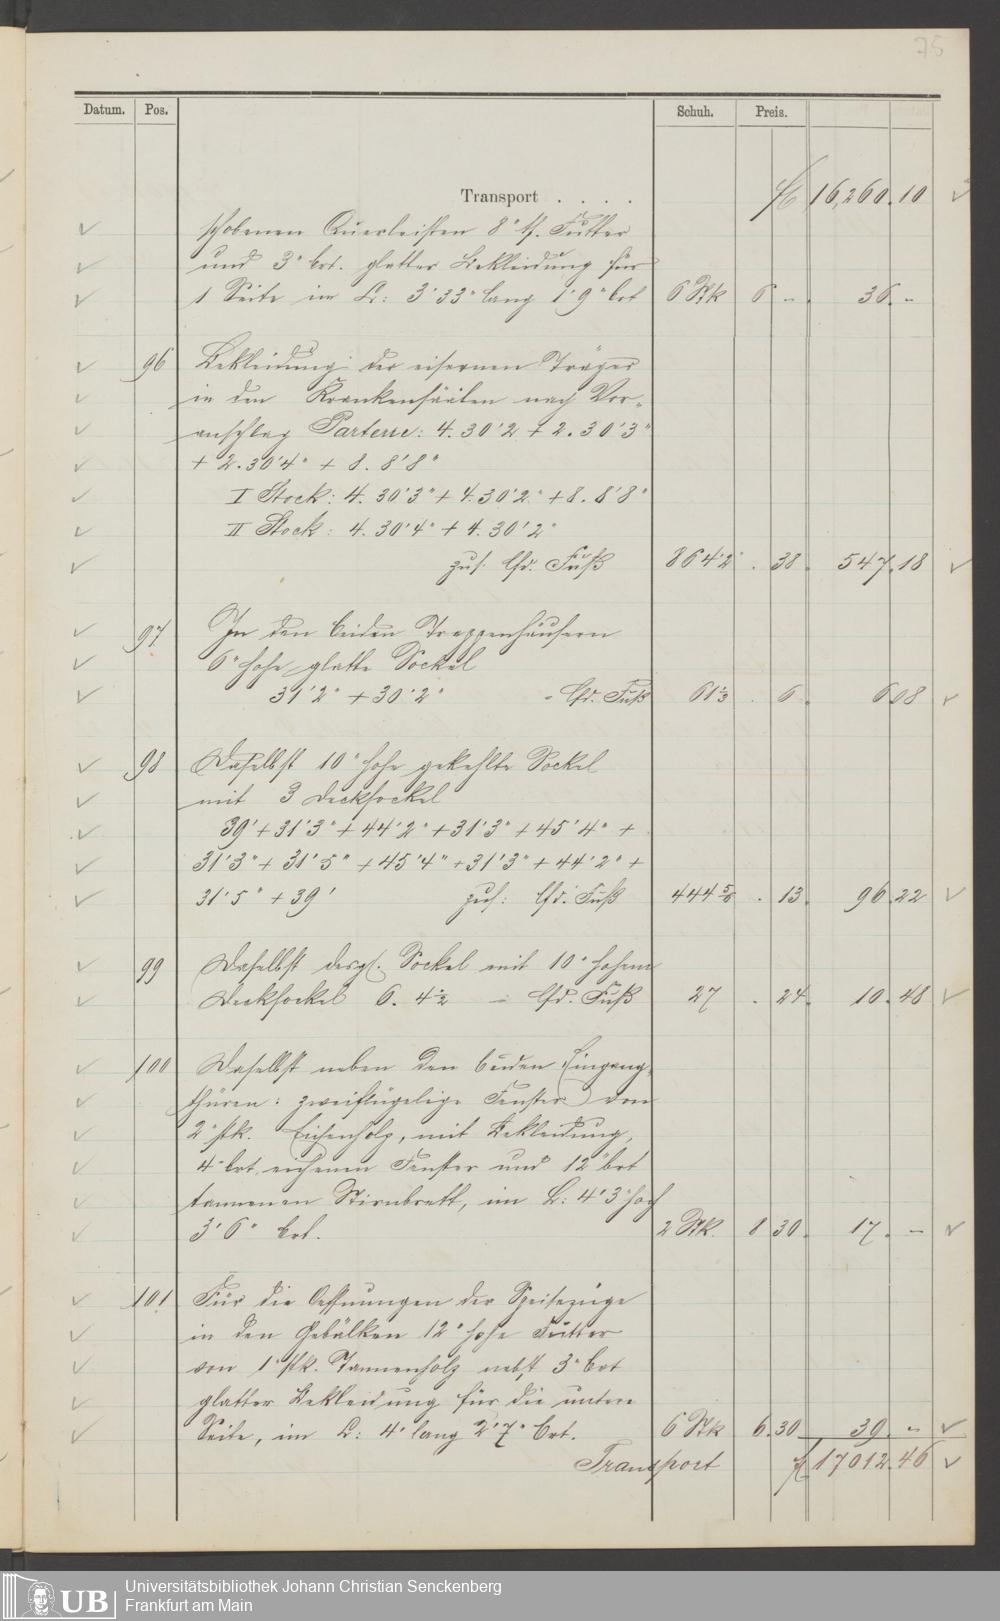 75
Datum. Pos. Schuh. Preis.
Transport . . . . fl 16,260.10
schobenen Querleisten 8" tf. Futter
und 3" brt. glatter Bekleidung für
1 Seite im L: 3'33" lang 1'9" brt 6 Stk 6 - . 36. -
96 Bekleidung der eisernen Träger
in den Krankensäälen nach Vor-
anschlag Parterre: 4. 30'2 + 2. 30'3"
+ 2. 30'4" + 8. 8'8"
I Stock: 4. 30'3" + 4. 30'2" + 8. 8'8"
II Stock: 4. 30'4" + 4. 30'2"
zus. lfd. Fuß 864'2" . 38. 547.18
97 In den beiden Treppenhäusern
6" hohe glatte Sockel
31'2" + 30'2" = lfd. Fuß 61 1/3 . 6. 6.08
98 Daselbst 10" hohe gekehlte Sockel
mit 3 Decksockel
39' + 31'3" + 44'2" + 31'3" + 45'4" +
31'3" + 31'5" + 45'4" + 31'3" + 44'2" +
31'5" + 39' zus: lfd. Fuß 444 5/6 . 13. 96.22
99 Daselbst desgl. Sockel mit 10" hohem
Decksockel 6. 4 1/2 = lfd. Fuß 27 . 24. 10.48
100 Daselbst neben den beiden Eingang-
thüren: zweiflügelige Fenster von
2" stk. Eichenholz, mit Bekleidung,
4" brt. eichenen Fenster und 12" brt
tannenen Stirnbrett, im L: 4'3" hoch
3'6" brt. 2 Stk. 8 30. 17. -
101 Für die Oeffnungen der Speisezüge
in den Gebälken 12" hohe Futter
von 1" stk. Tannenholz nebst 3" brt
glatter Bekleidung für die untere
Seite, im L: 4' lang 2'7" brt. 6 Stk 6.30 39. -
Transport fl 17012.46
UB
Universitätsbibliothek Johann Christian Senckenberg
Frankfurt am Main